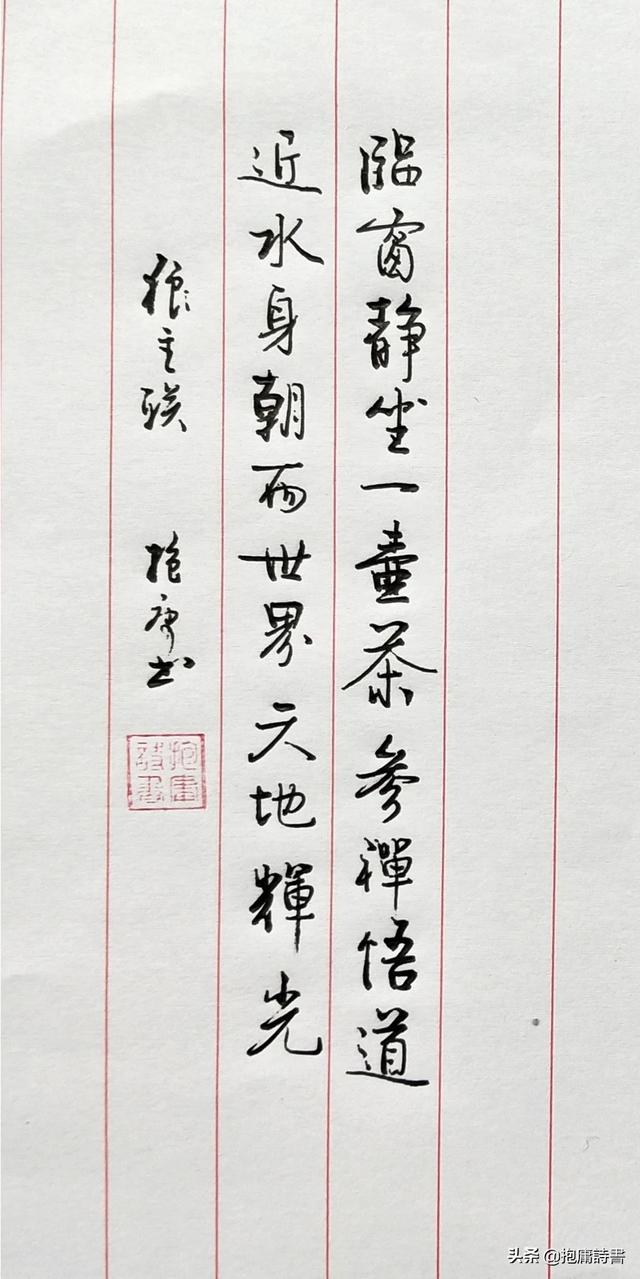 臨窗静坐一壺茶參禪悟道
近水身朝两世界天地輝光
狼主联 抱庸书
抱庸詩書
头条 @抱庸詩書